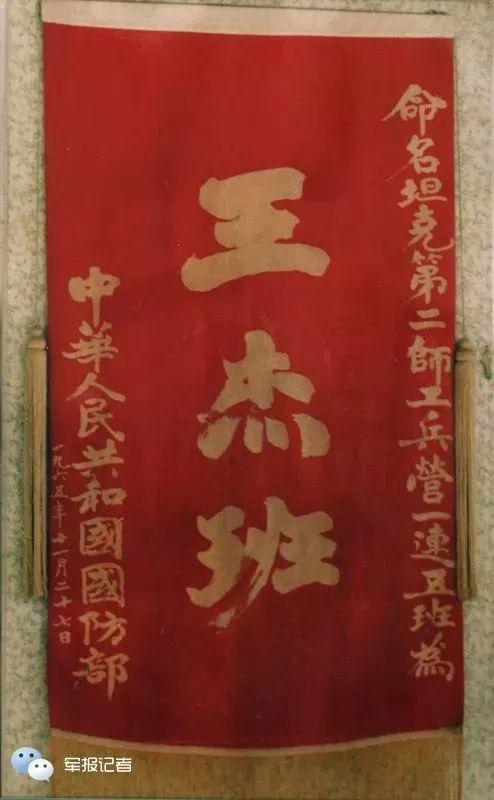 命名坦克第二師工兵營一連五班為
王杰班
中華人民共和國國防部
一九六五年十一月二十七日
军报记者